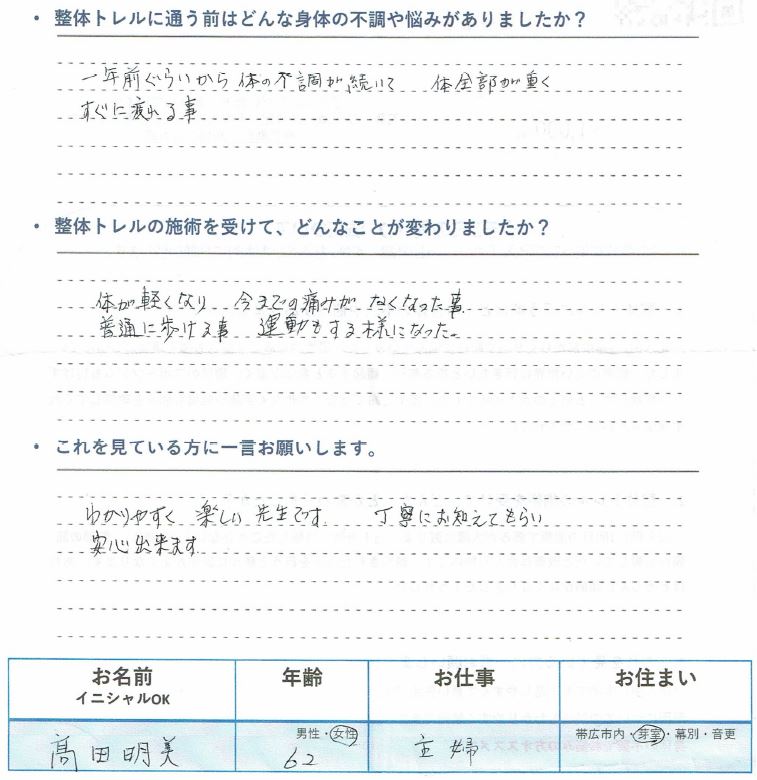 ・ 整体トレルに通う前はどんな身体の不調や悩みがありましたか？
一年前ぐらいから 体の不調が続いて 体全部が重く
すぐに疲れる事
・ 整体トレルの施術を受けて、どんなことが変わりましたか？
体が軽くなり 今までの痛みが なくなった事.
普通に歩ける事 運動もする様になった。
・ これを見ている方に一言お願いします。
わかりやすく 楽しい 先生です. 丁寧にお知えてもらい
安心出来ます.
お名前 年齢 お仕事 お住まい
イニシャルOK
男性・女性 帯広市内・芽室・幕別・音更
髙田明美 62 主婦